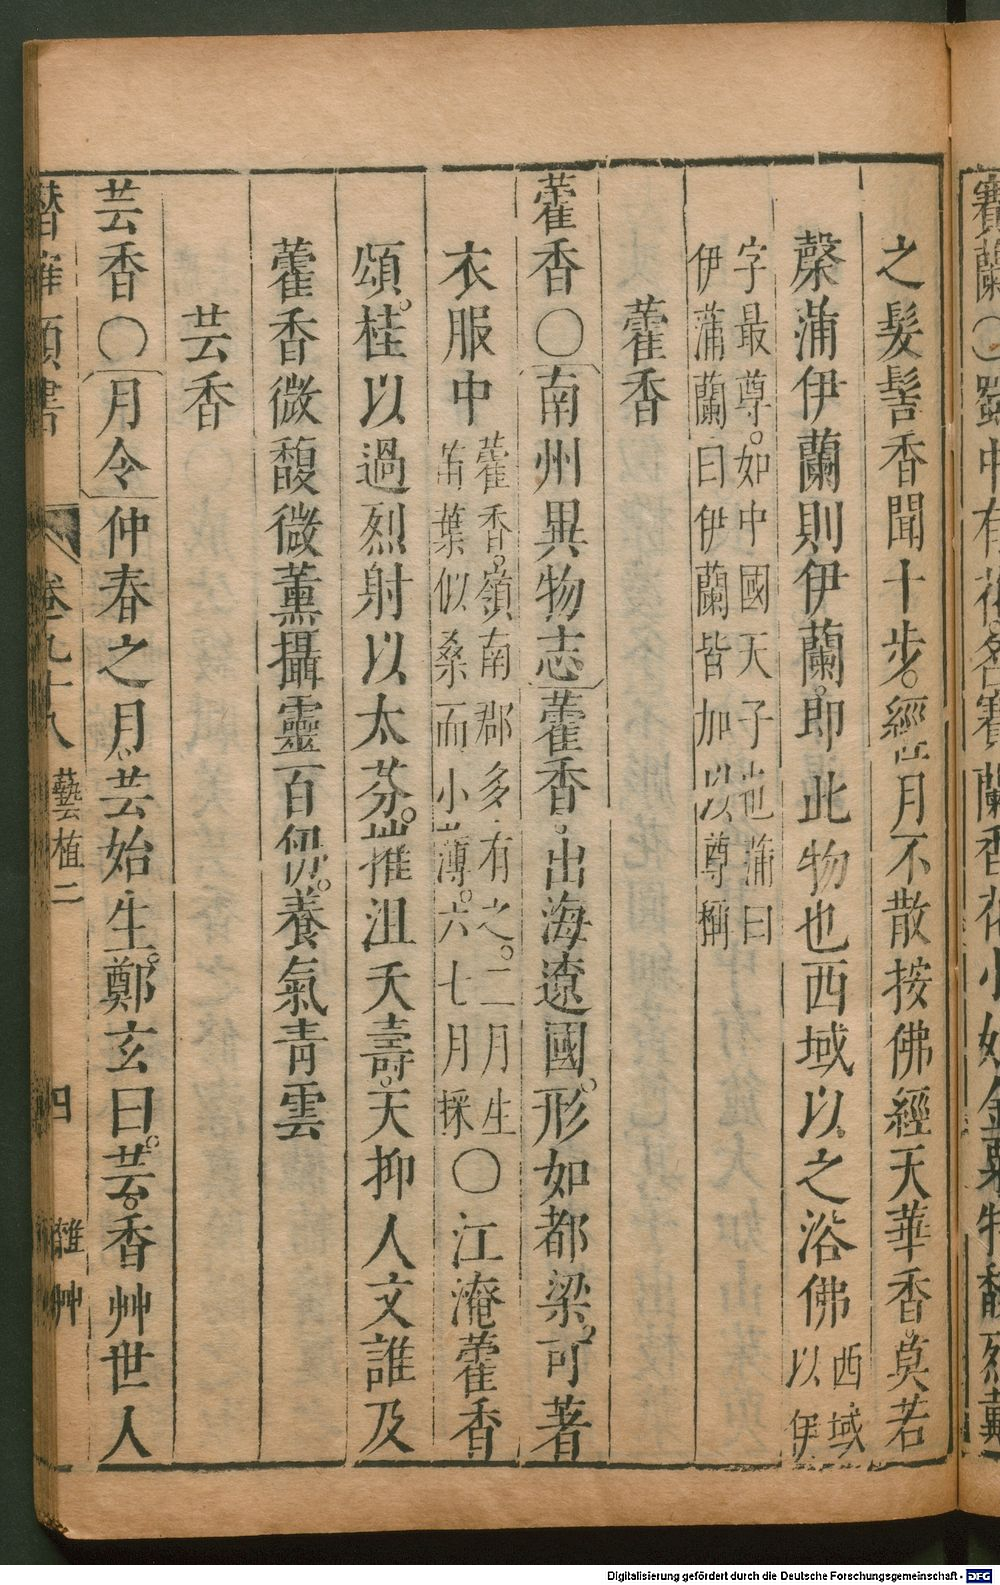 賽蘭○蜀中有花名賽蘭香花小如金粟特馥烈戴
之髮髻香聞十步經月不散按佛經天華香莫若
蒲伊蘭則伊蘭即此物也西域以之浴佛西域以伊
字最尊如中國天子也蒲曰
伊蒲蘭曰伊蘭皆加以尊稱
藿香
藿香○南州異物志藿香出海遼國形如都梁可著
衣服中藿香嶺南郡多有之二月生
苗葉似桑而小薄六七月採○江淹藿香
頌桂以過烈射以太芬摧沮夭壽天抑人文誰及
藿香微馥微薰攝靈百仞養氣青雲
芸香
芸香○月令仲春之月芸始生鄭玄曰芸香艸世人
潛確類書 卷九十八 藝植二 四 雜艸
Digitalisierung gefördert durch die Deutsche Forschungsgemeinschaft - DFG